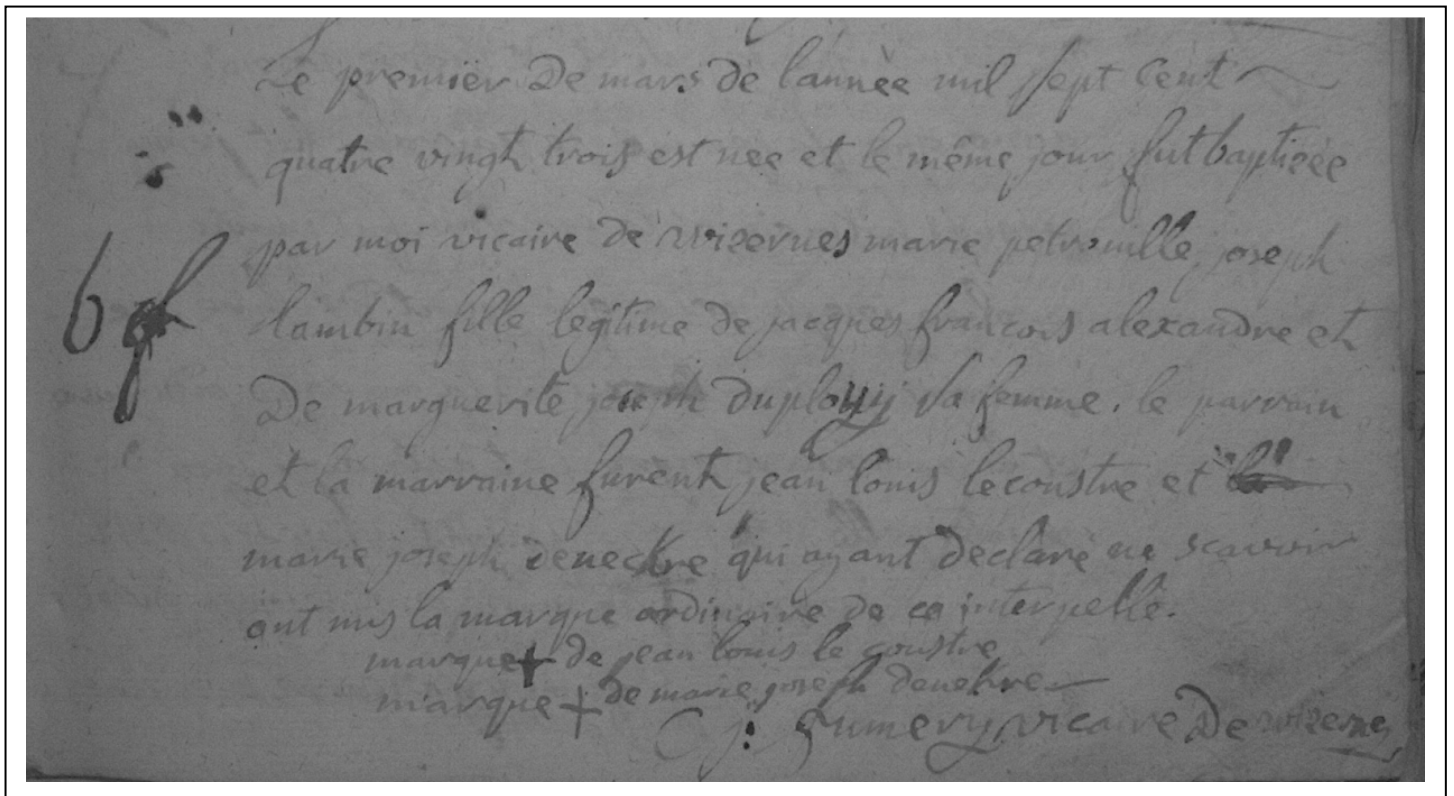 Le premiër De mars de lannèe mil sept cent
quatre vingh trois est nee et le même jour fut baptizèe
par moi vicaire de wizernes marie petronille joseph
lambin fille legitime de jacques francois alexandre et
De marguerite joseph duployy sa femme. le parrain
et la marraine furent jean louis lecoustre et la
marie joseph deneckre qui ayant declarè ne scavoir
ont mis la marque ordinaire de ce interpellè.
marque + de jean louis le coustre
marque + de marie joseph denekre
C j: Fumery vicaire De wizernes